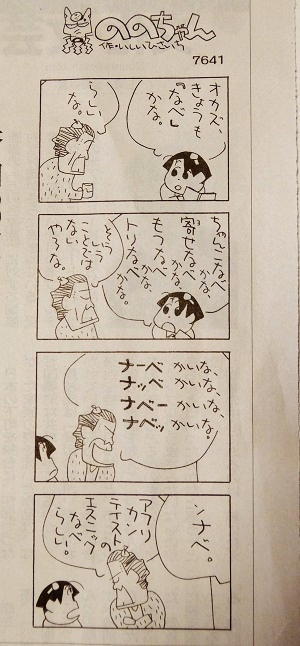 ののちゃん
作・いしいひさいち
7641
オカズ、
きょうも
『なべ』
かな。
らしい
な。
ちゃんこなべ
かな、
寄せなべ
かな、
もつなべ
かな、
トリなべ
かな。
そういう
ことでは
ない
やろな。
ナーベ かいな、
ナッベ かいな、
ナベー かいな、
ナベッ かいな。
ンナベ。
アフリ
カン
テイストの
エスニック
なべ
らしい。